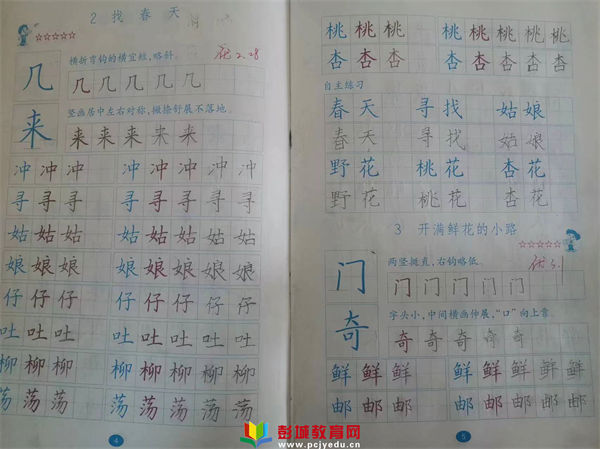 2 找 春 天
优 2.28
横折弯钩的横宜短,略斜。
几 几 几 几 几 几
竖画居中左右对称,撇捺舒展不落地。
来 来 来 来 来 来
冲 冲 冲 冲 冲 冲 冲
寻 寻 寻 寻 寻 寻 寻
姑 姑 姑 姑 姑 姑 姑
娘 娘 娘 娘 娘 娘 娘
仔 仔 仔 仔 仔 仔 仔
吐 吐 吐 吐 吐 吐 吐
柳 柳 柳 柳 柳 柳 柳
荡 荡 荡 荡 荡 荡 荡
4
桃 桃 桃 桃 桃 桃 桃 桃
杏 杏 杏 杏 杏 杏 杏 杏
自主练习
春 天 寻 找 姑 娘
春 天 寻 找 姑 娘
野 花 桃 花 杏 花
野 花 桃 花 杏 花
3 开满鲜花的小路
两竖挺直,右钩略低。
门 门 门 门 门 门
字头小,中间横画伸展,“口”向上靠
奇 奇 奇 奇 奇 奇
鲜 鲜 鲜 鲜 鲜 鲜 鲜
邮 邮 邮 邮 邮 邮 邮
5
彭城教育网
www.pcjyedu.cn